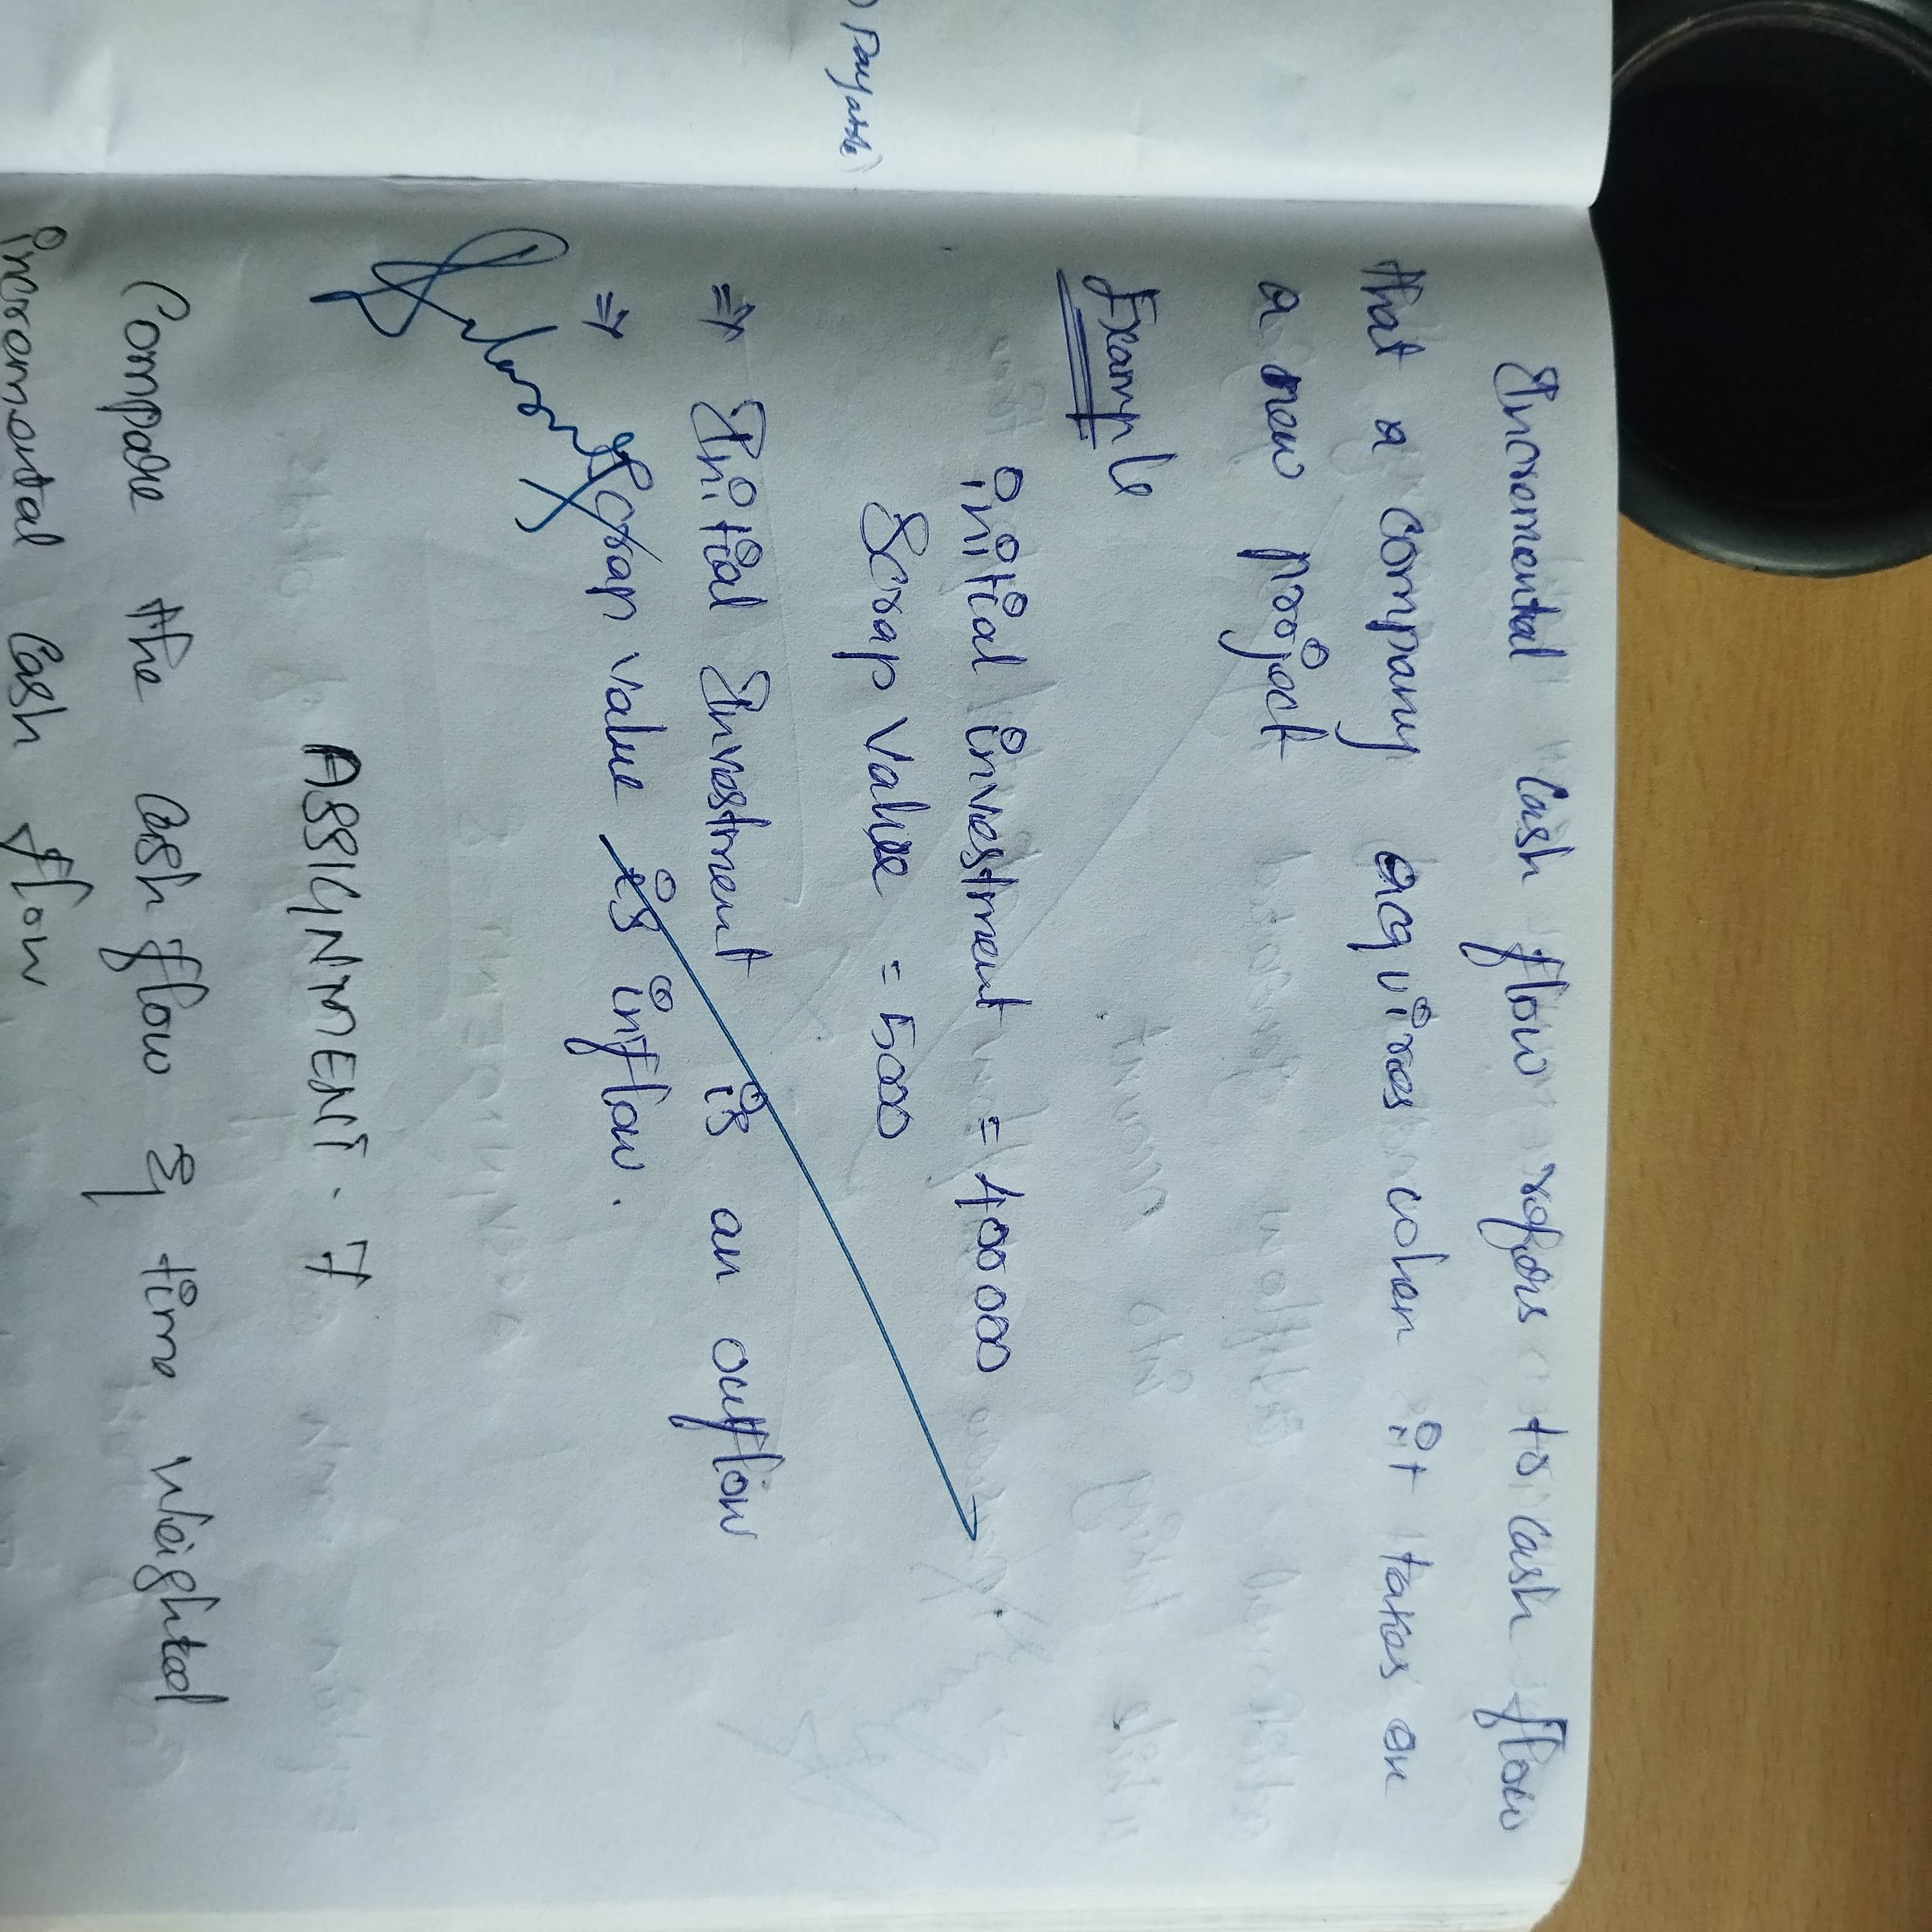 Payable)
Incremental Cash flow refers to cash flow
that a company acquires when it takes on
a new project
Example
initial investment = 400000
Scrap Value = 5000
=> Initial Investment is an outflow
=> Scrap value is inflow.
ASSIGNMENT. 7
Compare the Cash flow & time weighted
incremental Cash flow